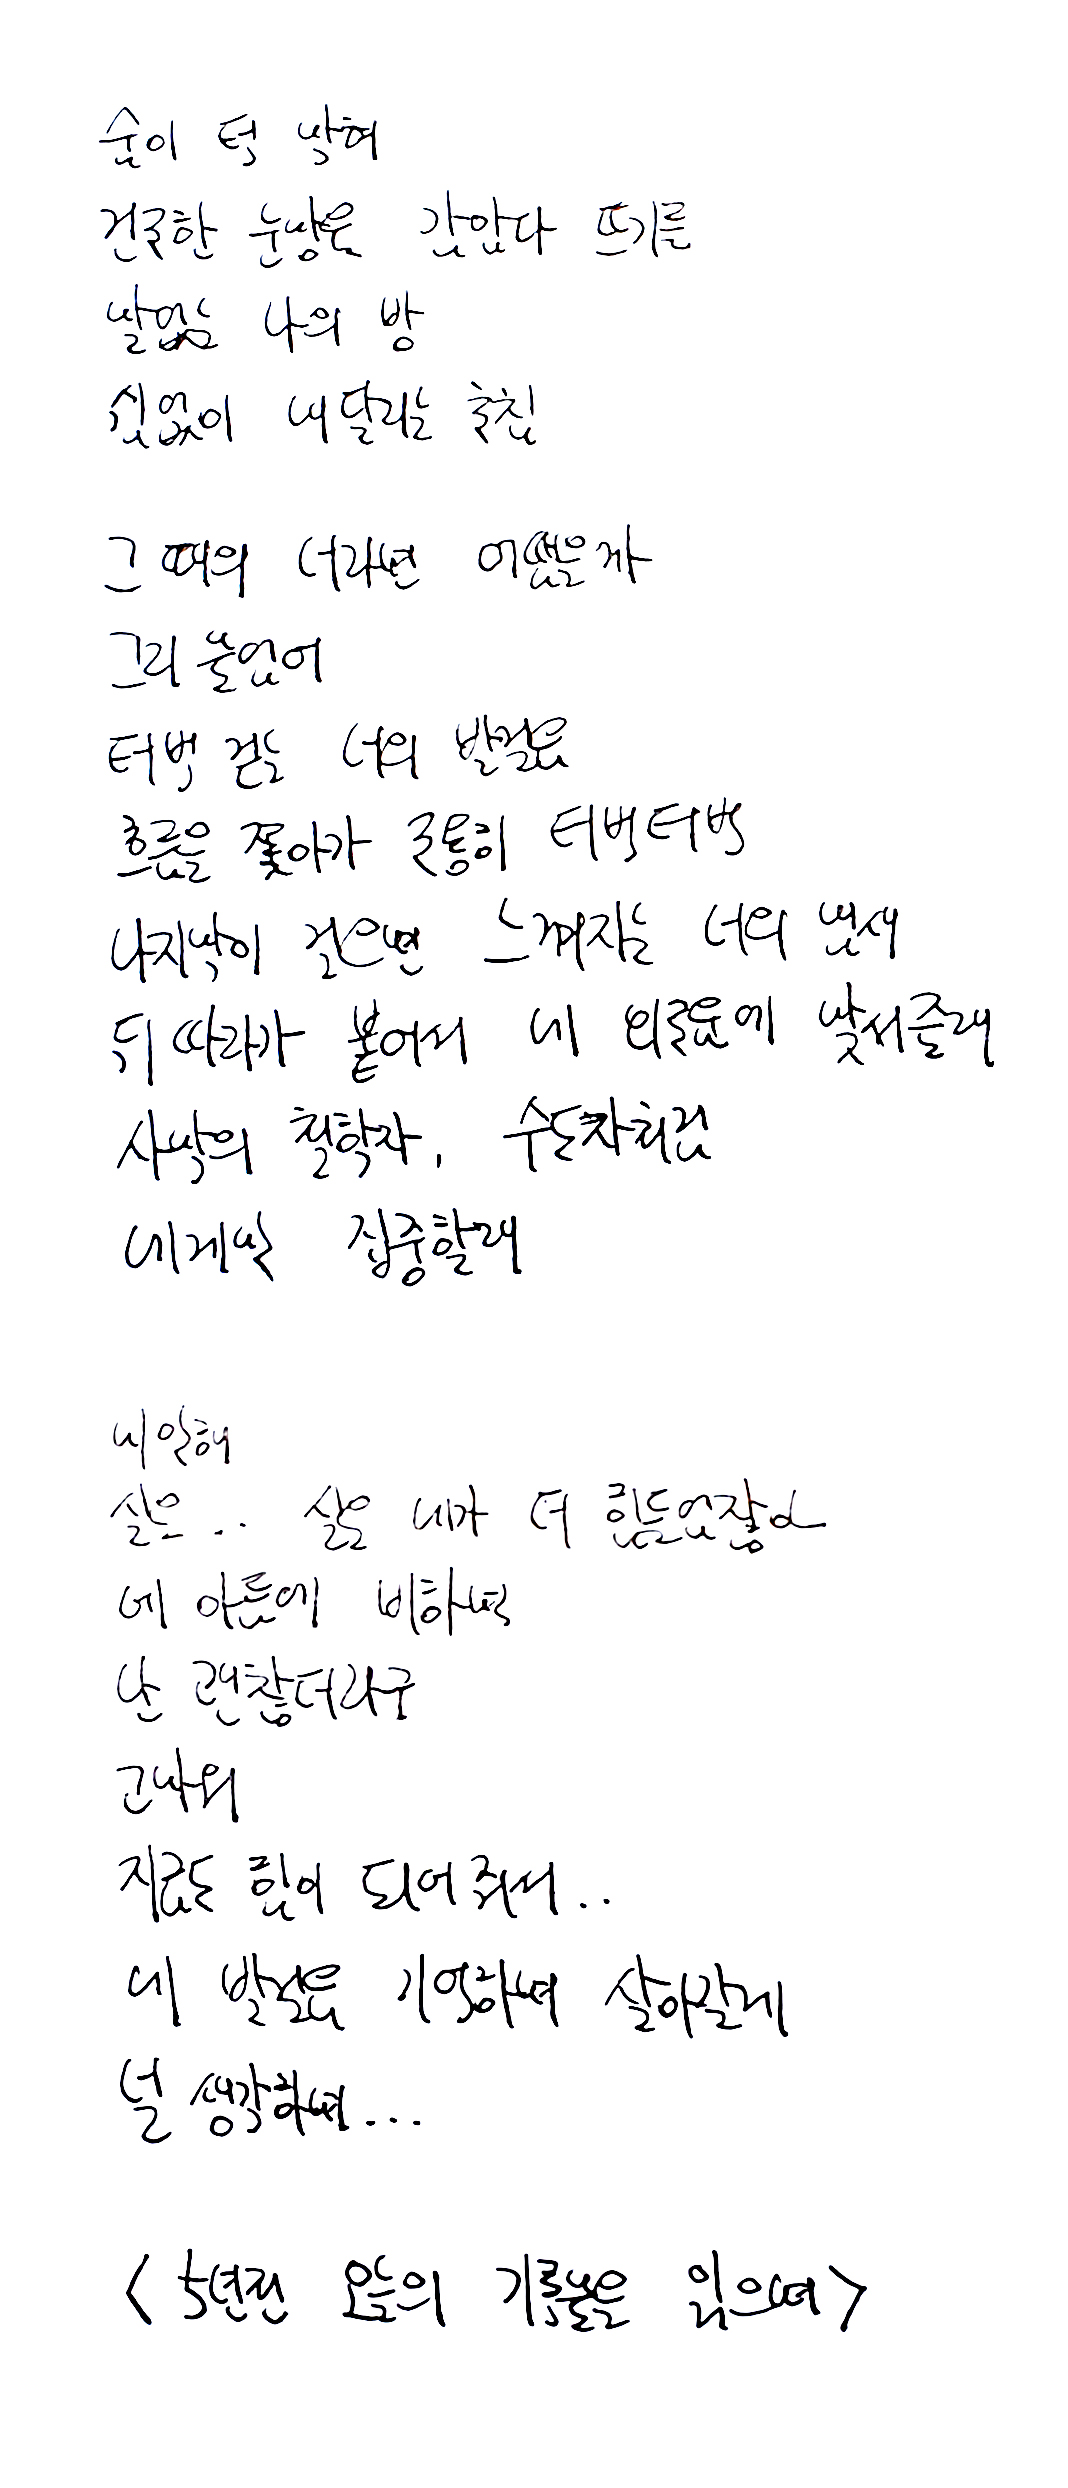 숨이 턱 막혀
건조한 눈망울 감았다 뜨기를
말없는 나의 방
쉼없이 내달리는 초침
그 때의 너라면 어땠을까
그리 물었어
터벅 걷는 너의 발걸음
흐름을 쫓아가 조용히 터벅터벅
나지막이 걸으면 느껴지는 너의 냄새
뒤따라가 붙어서 네 외로움에 맞서줄래
사막의 철학자, 수도자처럼
네게만 집중할래
미안해
실은.. 실은 네가 더 힘들었잖아
네 아픔에 비하면
난 괜찮더라구
고마워
지금도 힘이 되어줘서..
네 발걸음 기억하며 살아갈게
널 생각하며...
<5년전 오늘의 기록물을 읽으며>